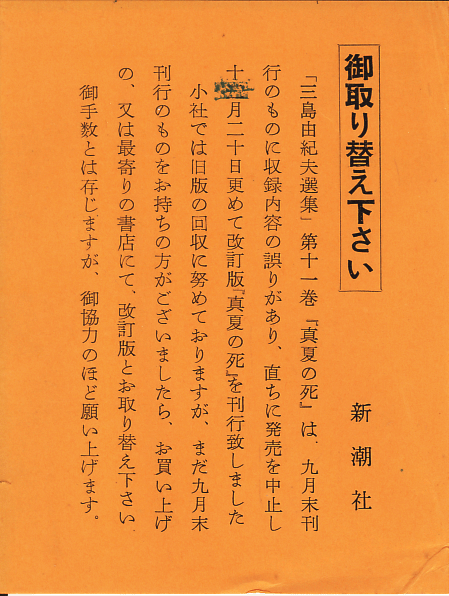 御取り替え下さい
新潮社
「三島由紀夫選集」第十一巻『真夏の死』は、九月末刊
行のものに収録内容の誤りがあり、直ちに発売を中止し
十月二十日更めて改訂版『真夏の死』を刊行致しました
小社では旧版の回収に努めておりますが、まだ九月末
刊行のものをお持ちの方がございましたら、お買い上げ
の、又は最寄りの書店にて、改訂版とお取り替え下さい
御手数とは存じますが、御協力のほど願い上げます。